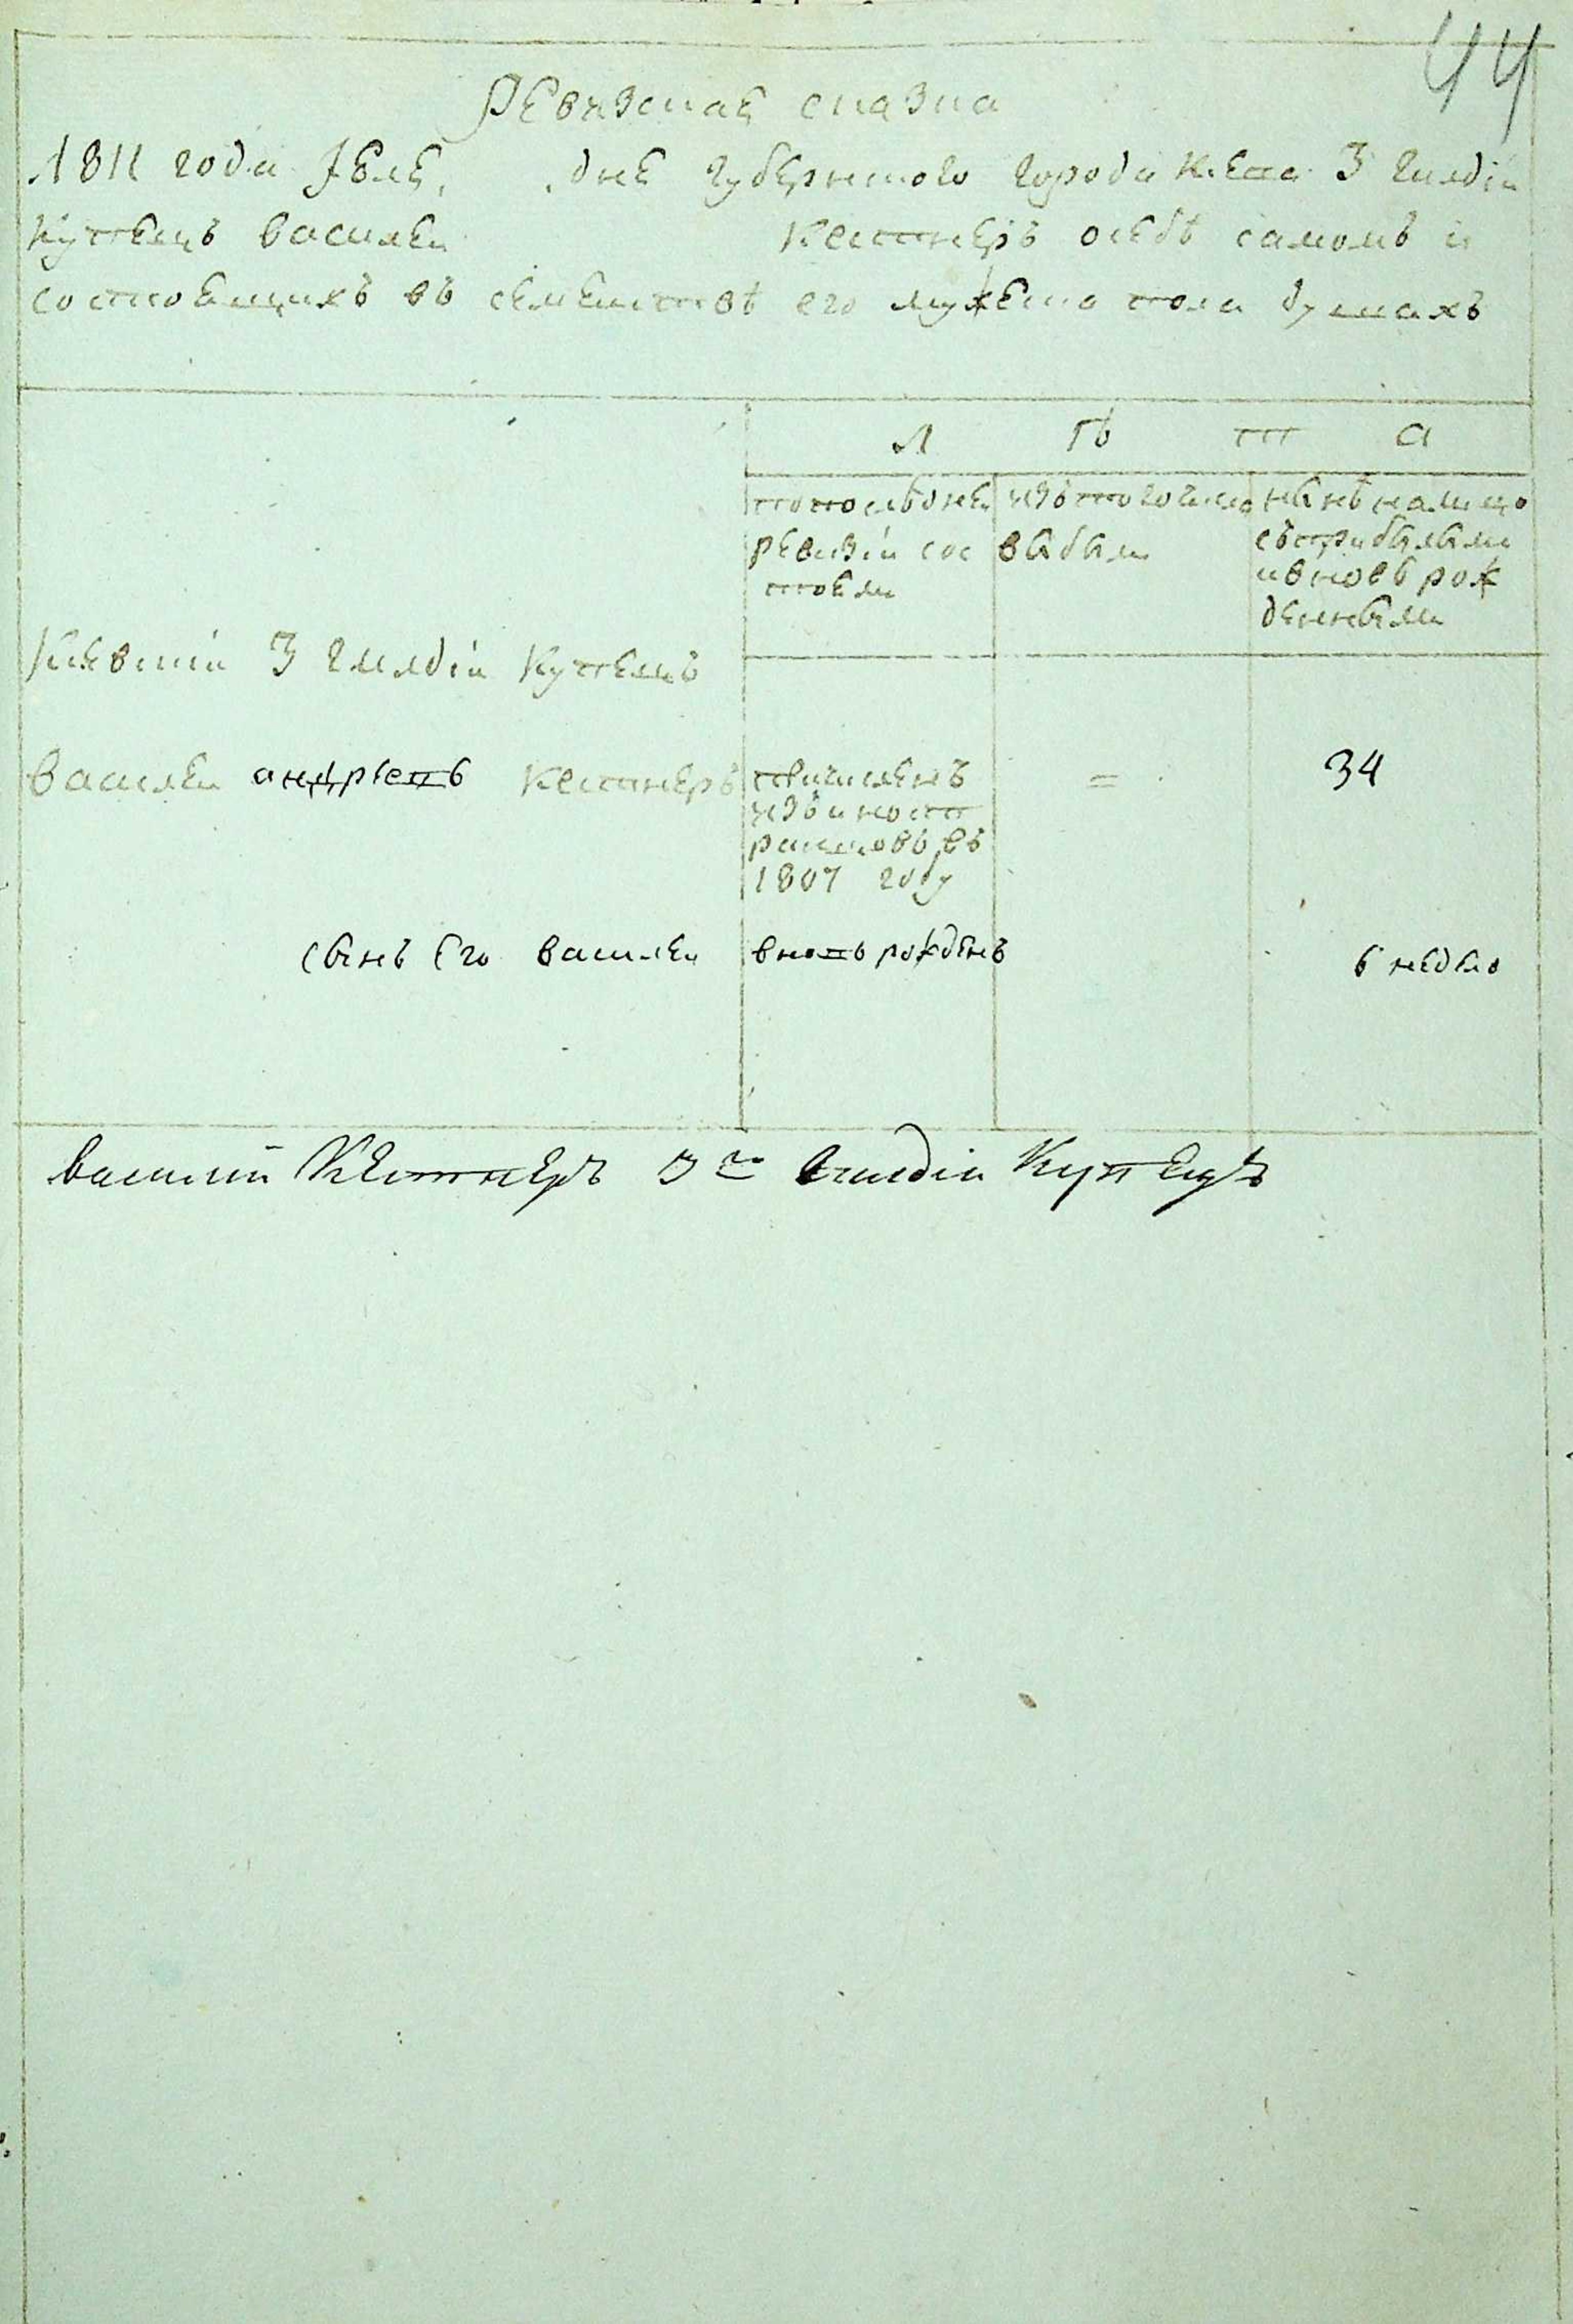 44
Ревизская сказка
1811 года Июля, дня губернского города Киева 3 гилдіи
Купецъ василей Кестнеръ осебѣ самомъ и
состоящихъ въ семействѣ его мужеска пола душахъ
Л Ѣ Т А
попоследней изътогочисла нынѣ налицо
ревизіи сос выбыли съприбылыми
тояли ивновь рож
денными
Кіевскій 3 гилдіи Купецъ
василей андреевъ Кестнеръ причисленъ = 34
изъиност
ранцовъ въ
1807 году
сынъ Его василей вновь рожденъ 6 недель
василий Кестнеръ 3й Гилдіи Купецъ